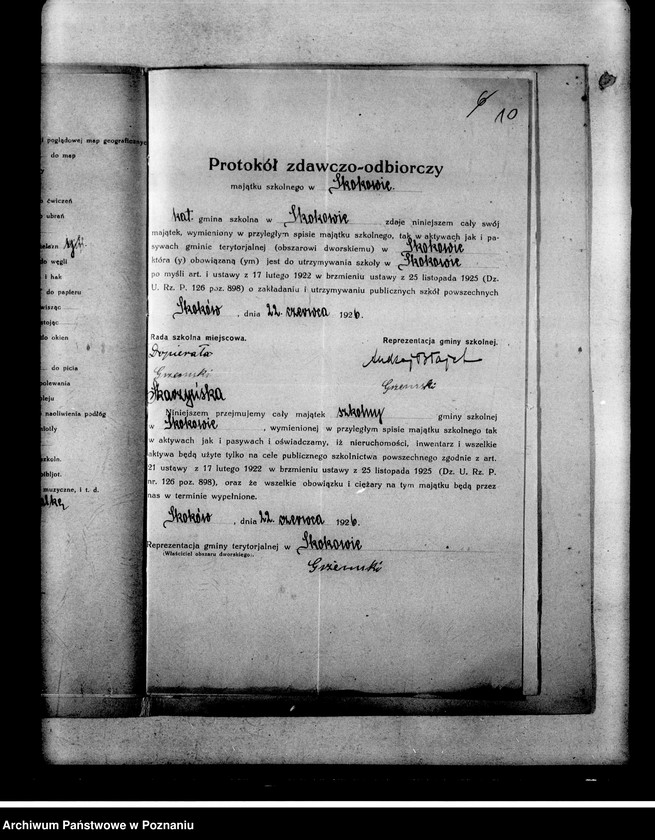 6
10
i poglądowej map geograficznyc
do map
y
ćwiczeń
ubrań
do węgli
i hak
do papieru
wisząc
stojąc
do okien
do picia
polewania
oleju
naoliwienia podłóg
szkoln.
bibljot.
muzyczne, i t. d.
Protokół zdawczo-odbiorczy
majątku szkolnego w Skokowie.
kat. gmina szkolna w Skokowie zdaje niniejszem cały swój
majątek, wymieniony w przyległym spisie majątku szkolnego, tak w aktywach jak i pa-
sywach gminie terytorjalnej (obszarowi dworskiemu) w Skokowie
która (y) obowiązaną (ym) jest do utrzymywania szkoły w Skokowie
po myśli art. i ustawy z 17 lutego 1922 w brzmieniu ustawy z 25 listopada 1925 (Dz.
U. Rz. P. 126 poz. 898) o zakładaniu i utrzymywaniu publicznych szkół powszechnych
Skoków, dnia 22. czerwca 1926.
Rada szkolna miejscowa.
Reprezentacja gminy szkolnej.
Dopierała
Grzemski
Skarzyńska
Andrzej
Grzemski
Niniejszem przejmujemy cały majątek szkolny gminy szkolnej
w Skokowie, wymienionej w przyległym spisie majątku szkolnego tak
w aktywach jak i pasywach i oświadczamy, iż nieruchomości, inwentarz i wszelkie
aktywa będą użyte tylko na cele publicznego szkolnictwa powszechnego zgodnie z art.
21 ustawy z 17 lutego 1922 w brzmieniu ustawy z 25 listopada 1925 (Dz. U. Rz. P.
nr. 126 poz. 898), oraz że wszelkie obowiązku i ciężary na tym majątku będą przez
nas w terminie wypełnione.
Skoków, dnia 22. czerwca 1926.
Reprezentacja gminy terytorjalnej w Skokowie
(Właściciel obszaru dworskiego).
Grzemski
Archiwum Państwowe w Poznaniu